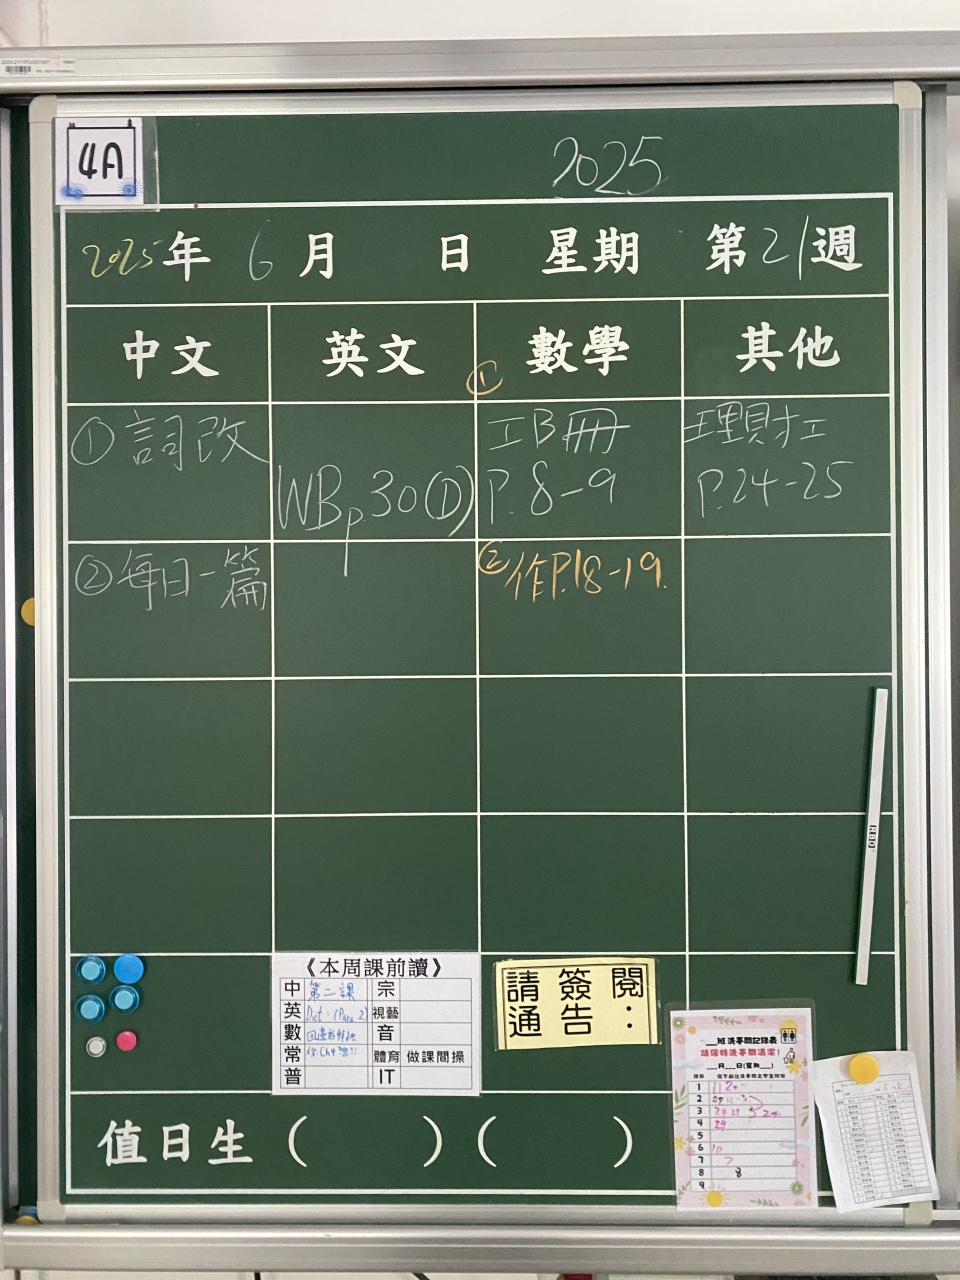 4A
2025
2025年 6月 日 星期 第21週
中文 英文 數學 其他
①詞改
WB p.30(D)
①
工B冊
P.8-9
理財工
P.24-25
②每日一篇
②作P.18-19.
《本周課前讀》
中 第二課 宗
英 視藝
數 音
常 體育 做課間操
普 IT
請簽閱
通告：
班洗手間記錄表
請保持洗手間清潔!
月 日(星期 )
1
2
3
4 29
5
6 10
7 7
8 8
9
RBD
值日生（ ）（ ）